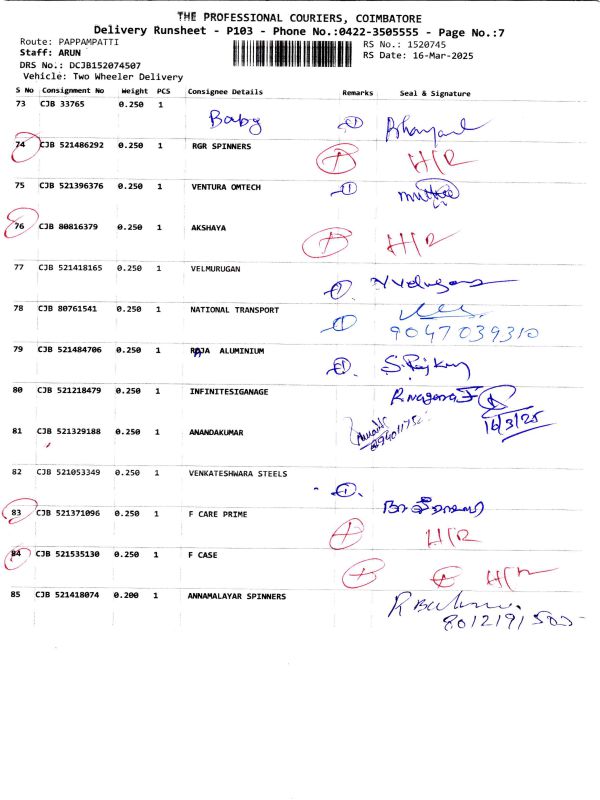 THE PROFESSIONAL COURIERS, COIMBATORE
Delivery Runsheet - P103 - Phone No.:0422-3505555 - Page No.:7
Route: PAPPAMPATTI RS No.: 1520745
Staff: ARUN RS Date: 16-Mar-2025
DRS No.: DCJB152074507
Vehicle: Two Wheeler Delivery
S No Consignment No Weight PCS Consignee Details Remarks Seal & Signature
73 CJB 33765 0.250 1 Baby 1
74 CJB 521486292 0.250 1 RGR SPINNERS H/R
75 CJB 521396376 0.250 1 VENTURA OMTECH 1
76 CJB 80816379 0.250 1 AKSHAYA H/R
77 CJB 521418165 0.250 1 VELMURUGAN 1
78 CJB 80761541 0.250 1 NATIONAL TRANSPORT 1
9047039310
79 CJB 521484706 0.250 1 RAJA ALUMINIUM 1
80 CJB 521218479 0.250 1 INFINITESIGANAGE
16/3/25
81 CJB 521329188 0.250 1 ANANDAKUMAR
82 CJB 521053349 0.250 1 VENKATESHWARA STEELS 1
83 CJB 521371096 0.250 1 F CARE PRIME H/R
84 CJB 521535130 0.250 1 F CASE H/R
85 CJB 521418074 0.200 1 ANNAMALAYAR SPINNERS